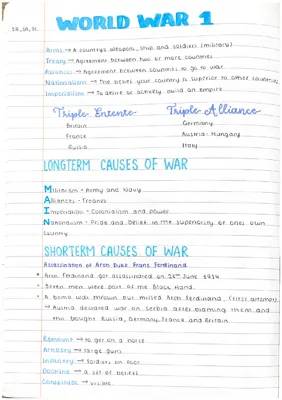 WORLD WAR 1
Arms → A countrys weapons, ship and soldiers (military)
Treaty → Agreement between two or more countries
Alliances → Agreement between countries to go to war
Nationalism → The belief your country is superior to other countries
Imperialism → To desire or actively build an empire
Triple Entente Triple Alliance
Britain Germany
France Austria-Hungary
Russia Italy
LONGTERM CAUSES OF WAR
Militarism - Army and Navy
Alliances - Treaties
Imperialism - Colonialism and power
Nationalism - Pride and belief in the superiority of ones own
country
SHORTERM CAUSES OF WAR
Assassination of Arch Duke Franz Ferdinand
Arch Ferdinand got assassinated on 28th June 1914
Seven men were part of the Black Hand
A bomb was thrown but missed Arch Ferdinand (first attempt)
→ Austria declared war on Serbia after blaming them and
this bought Russia, Germany, France and Britain
→ to get on a horse
Artillery → large guns
Infantry → Soldiers on foot
Doctrine → a set of beliefs